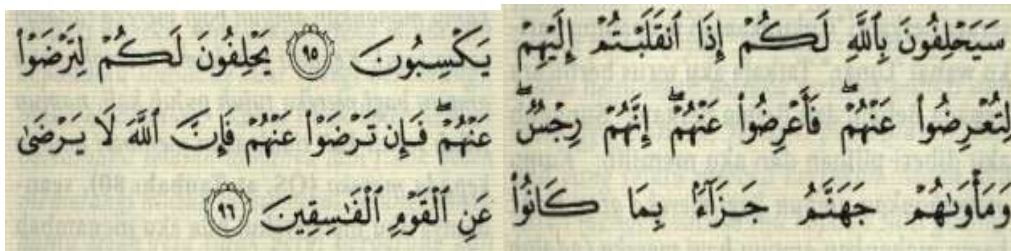 سَيَحْلِفُونَ بِٱللَّهِ لَكُمْ إِذَا ٱنقَلَبْتُمْ إِلَيْهِمْ
لِتُعْرِضُوا۟ عَنْهُمْ ۖ فَأَعْرِضُوا۟ عَنْهُمْ ۖ إِنَّهُمْ رِجْسٌ ۖ
وَمَأْوَىٰهُمْ جَهَنَّمُ جَزَآءًۢ بِمَا كَانُوا۟
يَكْسِبُونَ ۝٩٥ يَحْلِفُونَ لَكُمْ لِتَرْضَوْا۟
عَنْهُمْ ۖ فَإِن تَرْضَوْا۟ عَنْهُمْ فَإِنَّ ٱللَّهَ لَا يَرْضَىٰ
عَنِ ٱلْقَوْمِ ٱلْفَـٰسِقِينَ ۝٩٦